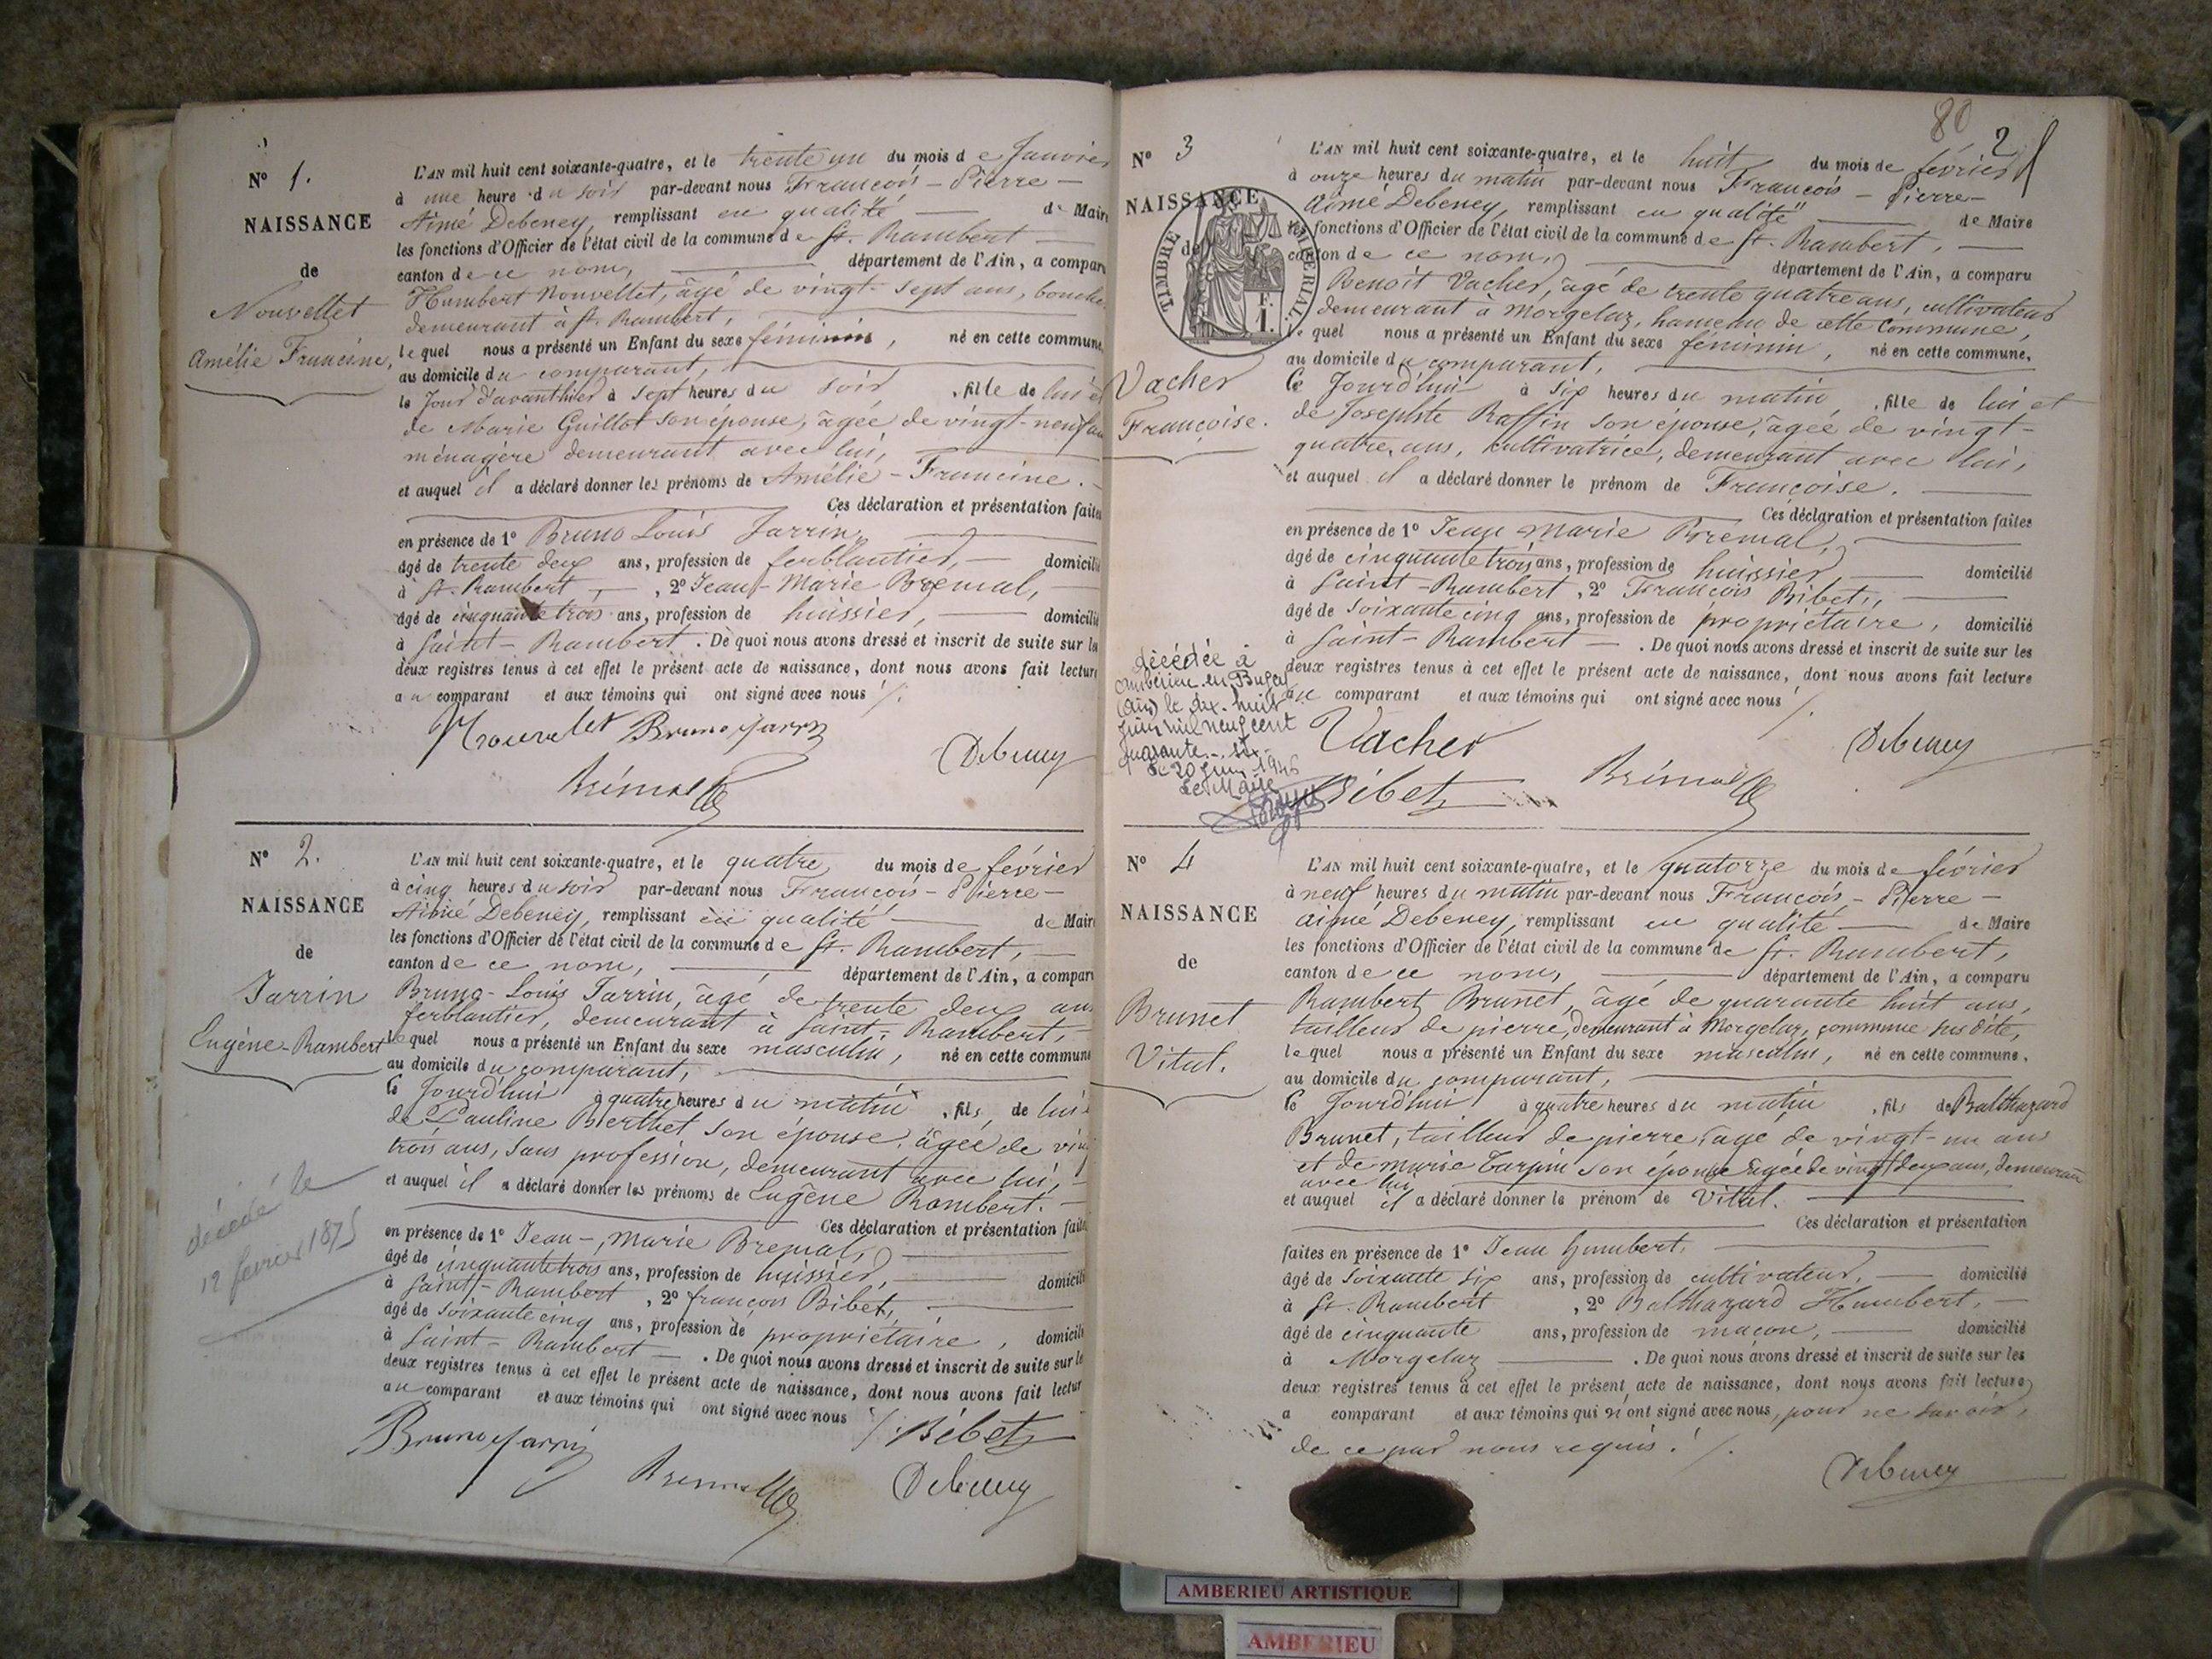 N° 1.
NAISSANCE
de
Nouvellet
Amélie Francine,
L'AN mil huit cent soixante-quatre, et le trente un du mois de Janvier
à une heure du soir par-devant nous François - Pierre -
Aimé Debeney, remplissant en qualité de Maire
les fonctions d'Officier de l'état civil de la commune de St. Rambert
canton de ce nom, département de l'Ain, a compar
Humbert Nouvellet, âgé de vingt-sept ans, bouche
demeurant à St. Rambert,
lequel nous a présenté un Enfant du sexe féminin, né en cette commune,
au domicile du comparant,
le Jour d'avant hier à sept heures du soir, fille de lui et
de Marie Guillot son épouse, âgée de vingt-neuf an
ménagère demeurant avec lui,
et auquel il a déclaré donner les prénoms de Amélie - Francine.
Ces déclaration et présentation faites
en présence de 1° Bruno Louis Jarrin,
âgé de trente deux ans, profession de ferblantier, domicilié
à St. Rambert, 2° Jean-Marie Bremal,
âgé de cinquante trois ans, profession de huissier, domicilié
à Saint-Rambert. De quoi nous avons dressé et inscrit de suite sur les
deux registres tenus à cet effet le présent acte de naissance, dont nous avons fait lecture
au comparant et aux témoins qui ont signé avec nous /.
Nouvelet Bruno Jarrin
Debeney
Brémal
N° 2.
NAISSANCE
de
Jarrin
Eugène-Rambert
décédé le
12 fevrier 1875
L'AN mil huit cent soixante-quatre, et le quatre du mois de février
à cinq heures du soir par-devant nous François - Pierre -
Aimé Debeney, remplissant en qualité de Maire
les fonctions d'Officier de l'état civil de la commune de St. Rambert,
canton de ce nom, département de l'Ain, a compar
Bruno-Louis Jarrin, âgé de trente deux ans
ferblantier, demeurant à Saint-Rambert,
lequel nous a présenté un Enfant du sexe masculin, né en cette commune
au domicile du comparant,
ce Jourd'hui à quatre heures du matin, fils de lui
de Pauline Berthet son épouse, âgée de vin
trois ans, sans profession, demeurant avec lui,
et auquel il a déclaré donner les prénoms de Eugène Rambert.
Ces déclaration et présentation faites
en présence de 1° Jean-Marie Bremal,
âgé de cinquante trois ans, profession de huissier, domicilié
à Saint-Rambert, 2° françois Bibet,
âgé de soixante cinq ans, profession de propriétaire, domicilié
à Saint-Rambert. De quoi nous avons dressé et inscrit de suite sur le
deux registres tenus à cet effet le présent acte de naissance, dont nous avons fait lectur
au comparant et aux témoins qui ont signé avec nous /.
Bibet
Bruno Jarrin
Bremal
Debeney
80
2
N° 3
NAISSANCE
de
TIMBRE IMPERIAL.
1 F.
Vacher
Françoise.
L'AN mil huit cent soixante-quatre, et le huit du mois de février
à onze heures du matin par-devant nous François - Pierre -
Aimé Debeney, remplissant en qualité de Maire
les fonctions d'Officier de l'état civil de la commune de St. Rambert,
canton de ce nom, département de l'Ain, a comparu
Benoit Vacher, âgé de trente quatre ans, cultivateur
demeurant à Morgelaz, hameau de cette Commune,
lequel nous a présenté un Enfant du sexe féminin, né en cette commune,
au domicile du comparant,
ce Jourd'hui à six heures du matin, fille de lui et
de Josephte Raffin son épouse, âgée de vingt-
quatre ans, cultivatrice, demeurant avec lui,
et auquel il a déclaré donner le prénom de Françoise.
Ces déclaration et présentation faites
en présence de 1° Jean Marie Bremal,
âgé de cinquante trois ans, profession de huissier, domicilié
à Saint-Rambert, 2° François Bibet,
âgé de soixante cinq ans, profession de propriétaire, domicilié
à Saint-Rambert. De quoi nous avons dressé et inscrit de suite sur les
deux registres tenus à cet effet le présent acte de naissance, dont nous avons fait lecture
au comparant et aux témoins qui ont signé avec nous /.
décédée à
Ambérieu en Bugey
(Ain) le dix-huit
juin mil neuf cent
quarante-six
Le 20 Juin 1946
Le Maire
Vacher
Debeney
Bibet
Brémal
N° 4
NAISSANCE
de
Brunet
Vital.
L'AN mil huit cent soixante-quatre, et le quatorze du mois de février
à neuf heures du matin par-devant nous François - Pierre -
aimé Debeney, remplissant en qualité de Maire
les fonctions d'Officier de l'état civil de la commune de St. Rambert,
canton de ce nom, département de l'Ain, a comparu
Rambert Brunet, âgé de quarante huit ans,
tailleur de pierre, demeurant à Morgelaz, commune sus dite,
lequel nous a présenté un Enfant du sexe masculin, né en cette commune,
au domicile du comparant,
ce Jourd'hui à quatre heures du matin, fils de Balthazard
Brunet, tailleur de pierre, âgé de vingt-un ans
et de marie Tarpin son épouse âgée de vingt deux ans, demeurant
avec lui
et auquel il a déclaré donner le prénom de Vital.
Ces déclaration et présentation
faites en présence de 1° Jean Humbert,
âgé de soixante six ans, profession de cultivateur, domicilié
à St. Rambert, 2° Balthazard Humbert,
âgé de cinquante ans, profession de maçon, domicilié
à Morgelaz. De quoi nous avons dressé et inscrit de suite sur les
deux registres tenus à cet effet le présent acte de naissance, dont nous avons fait lecture
a comparant et aux témoins qui n'ont signé avec nous, pour ne savoir,
de ce par nous requis. /.
Debeney
AMBERIEU ARTISTIQUE
AMBERIEU